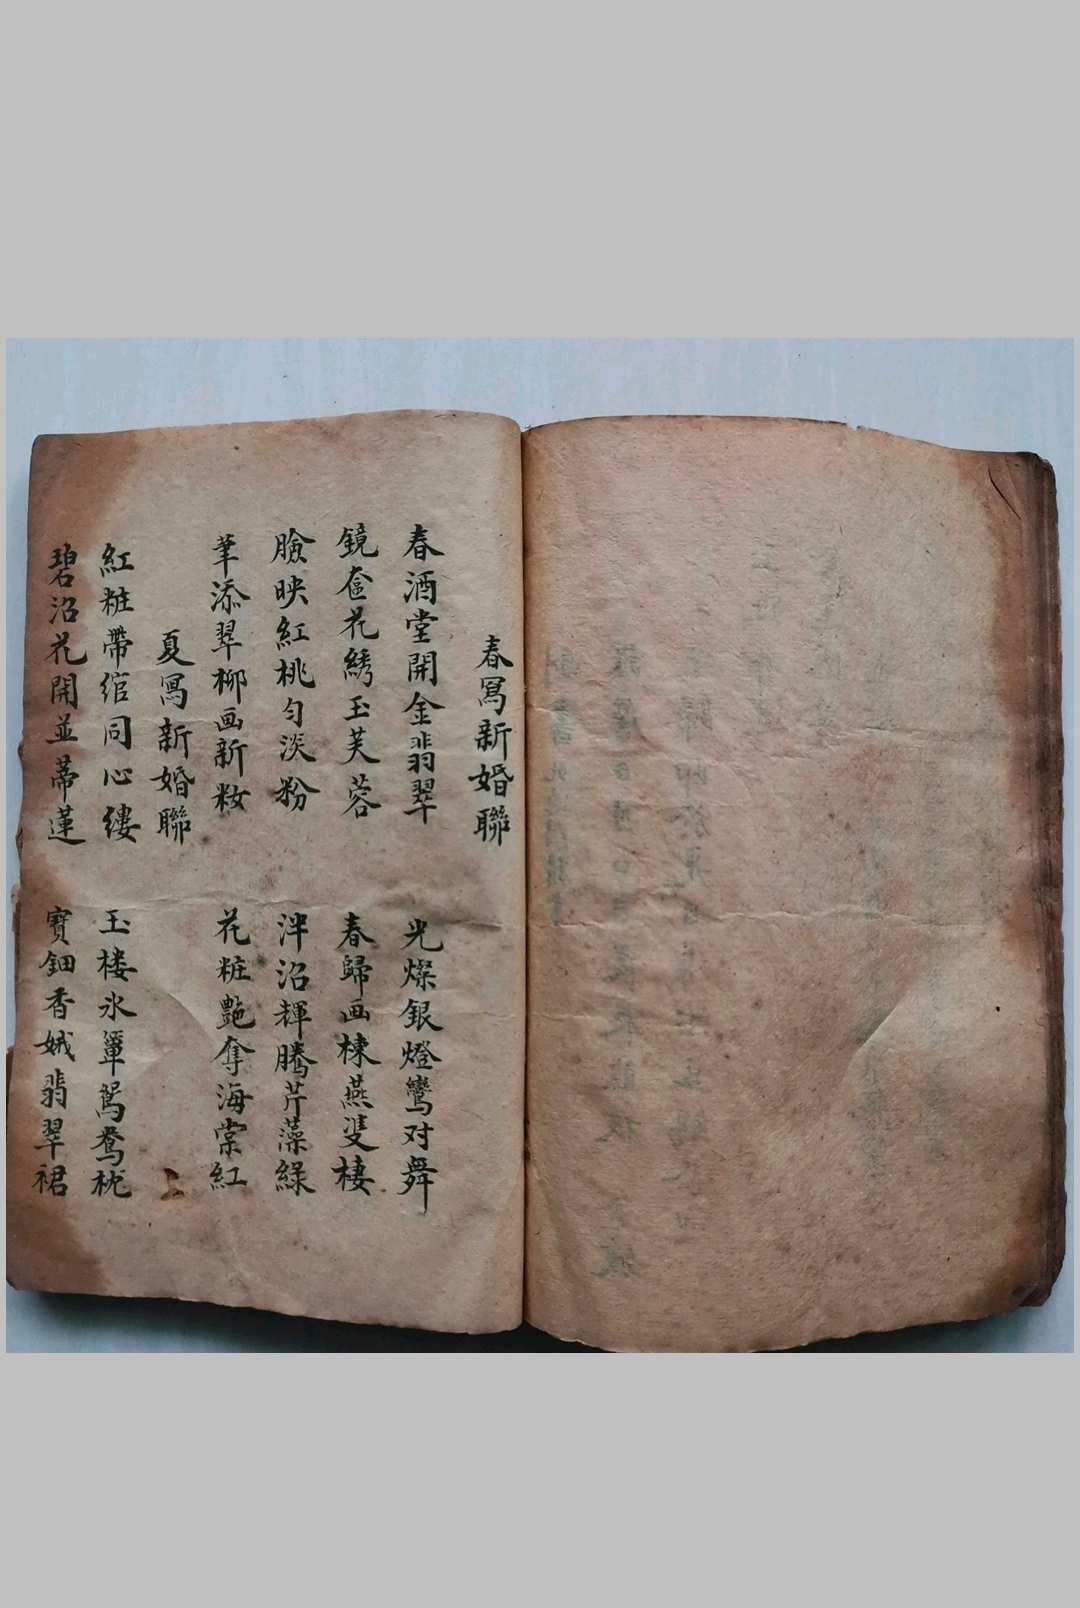 春冩新婚聯
春酒堂開金翡翠 光燦銀燈鸞对舞
鏡奩花綉玉芙蓉 春歸画棟燕雙棲
臉映紅桃匀淡粉 泮沼輝騰芹藻綠
筆添翠柳画新妝 花粧艷奪海棠紅
夏冩新婚聯
紅粧帶綰同心縷 玉楼氷簟鴛鴦枕
碧沼花開並蒂蓮 寳鈿香娥翡翠裙